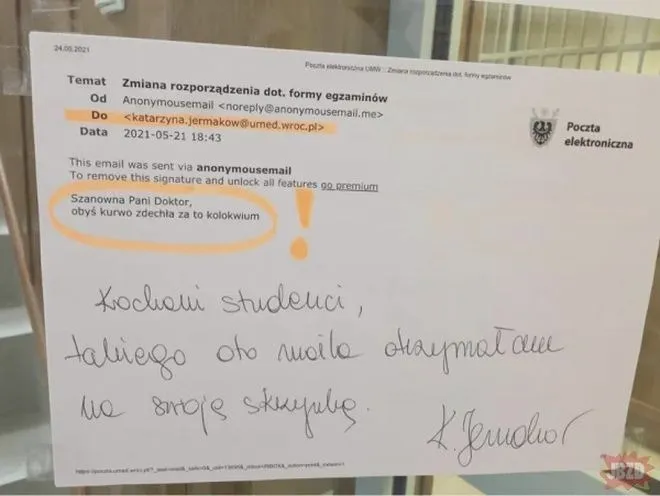 24.05.2021
Poczta elektroniczna UMW :: Zmiana rozporządzenia dot. formy egzaminów
Temat Zmiana rozporządzenia dot. formy egzaminów
Od Anonymousemail <noreply@anonymousemail.me>
Do <katarzyna.jermakow@umed.wroc.pl>
Data 2021-05-21 18:43
Poczta
elektroniczna
This email was sent via anonymousemail
To remove this signature and unlock all features go premium
Szanowna Pani Doktor,
obyś kurwo zdechła za to kolokwium
!
Kochani studenci,
takiego oto maila otrzymałam
na swoją skrzynkę.
K. Jermakow
JBZD